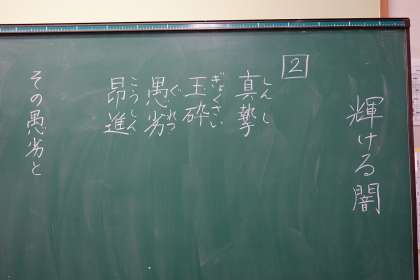 輝ける闇
2
真摯
しんし
玉砕
ぎょくさい
愚劣
ぐれつ
昂進
こうしん
その愚劣と